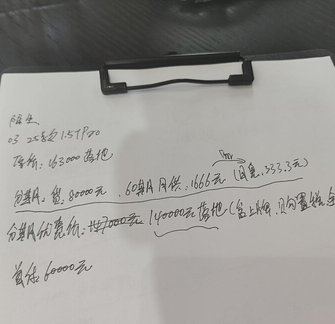 03 25款 1.5T Pro
163000落地
分期:贷:80000元 60期 月供:1666元(月息:333.3元)
分期优惠价:147000元 140000元落地(含上牌,只包置换
首付:60000元